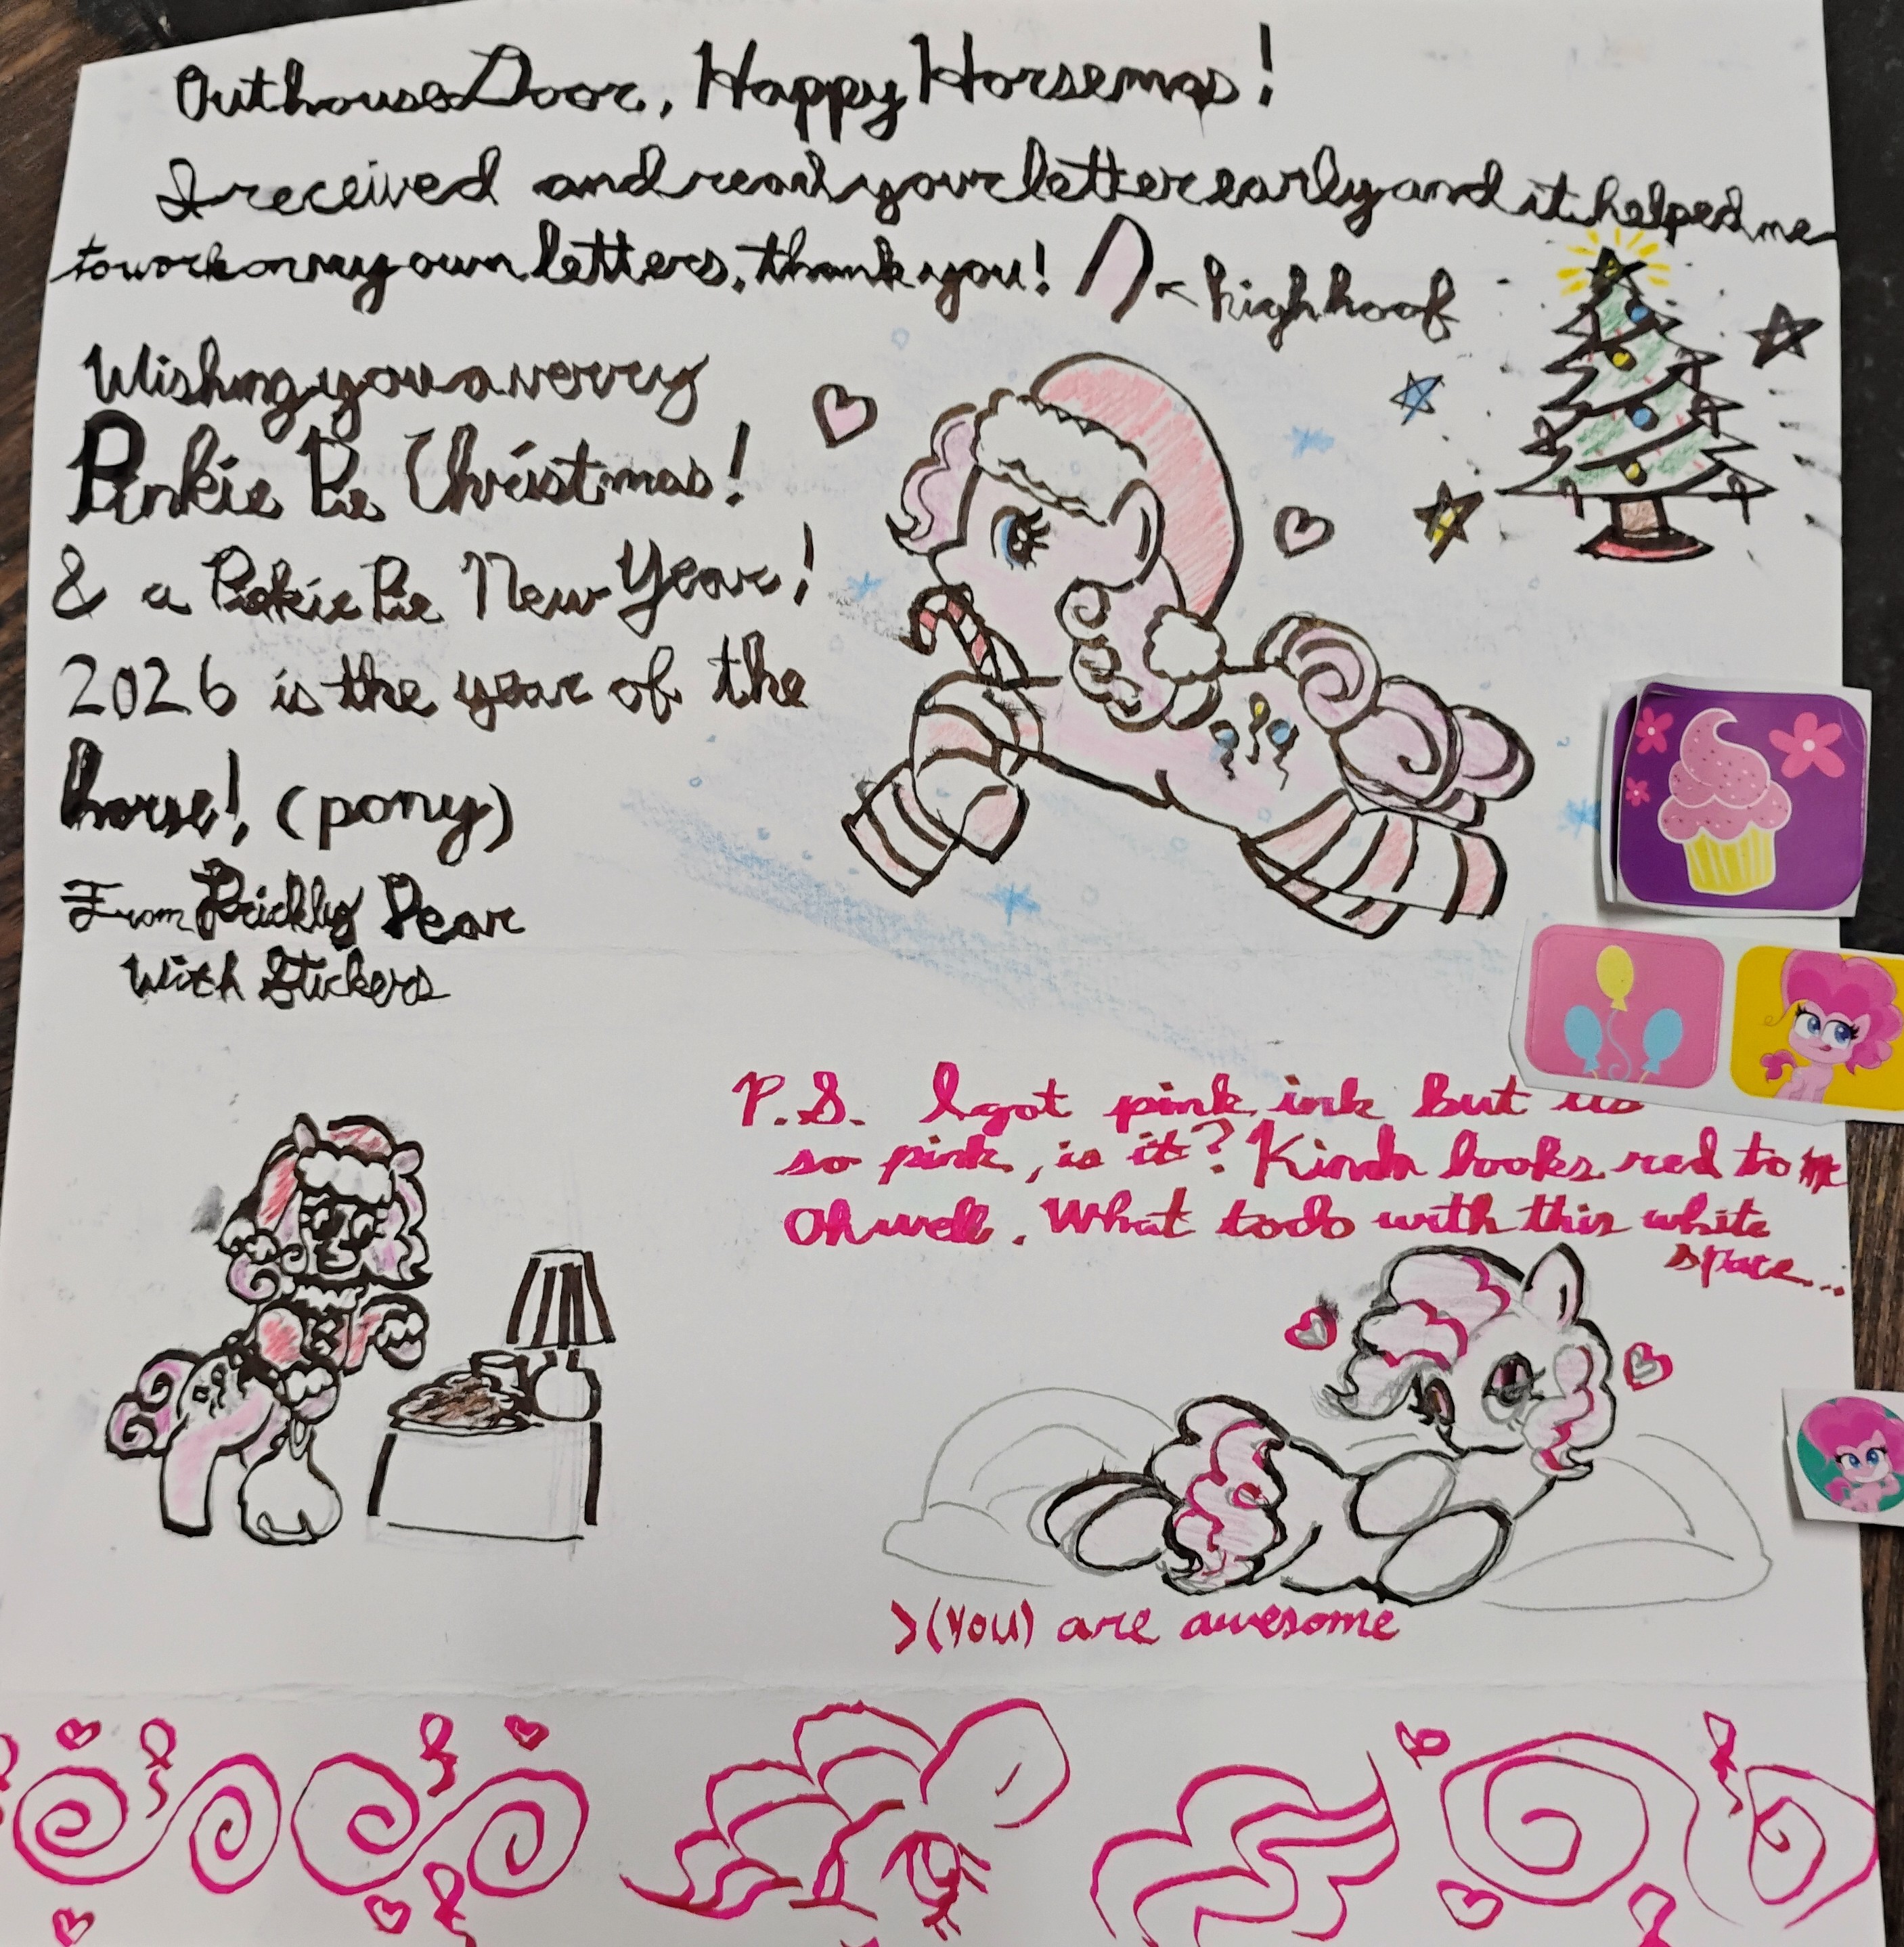 OuthouseDoor, Happy Horsemas!
I received and read your letter early and it helped me
to work on my own letters, thank you! <- high hoof
Wishing you a verry
Pinkie Pie Christmas!
& a Pinkie Pie New Year!
2026 is the year of the
horse! (pony)
From Prickly Pear
With Stickers
P.S. I got pink ink but its
so pink, is it? Kinda looks red to me
Oh well. What to do with this white
space...
>(YOU) are awesome